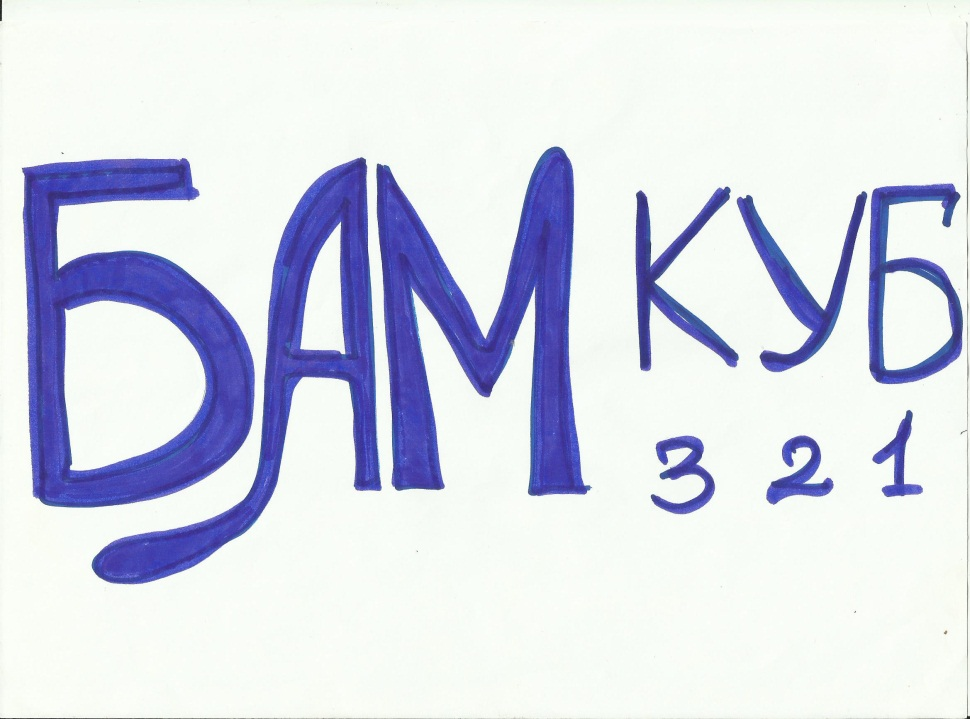 БАМ КУБ
3 2 1